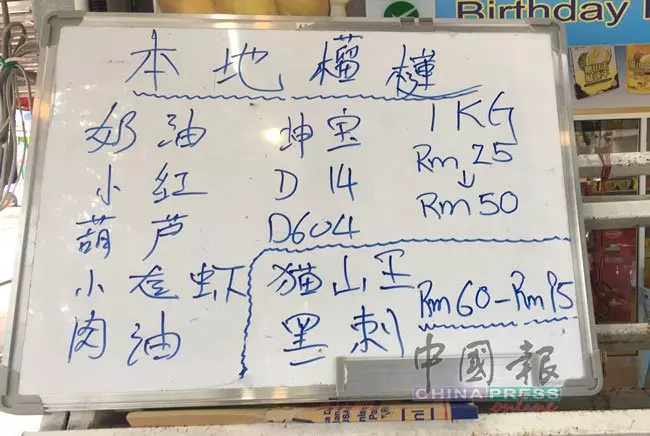 Birthday
本地榴槤
奶油 坤宝 1KG
小红 D 14 Rm 25
↓
葫芦 D604 Rm 50
小龙虾 猫山王 Rm60-Rm95
肉油 黑刺
中國報
CHINA PRESS
online